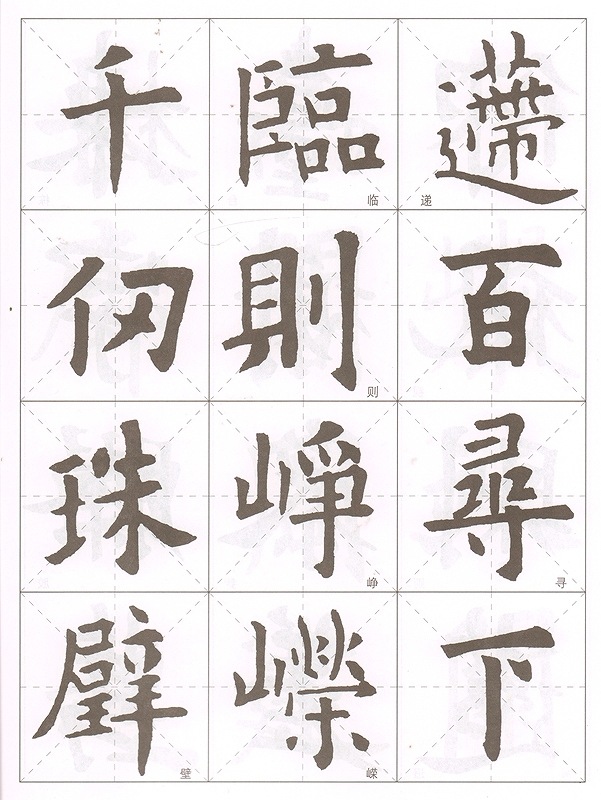 遰百尋下
递
寻
臨則崢嶸
临
则
峥
嵘
千仞珠璧
璧